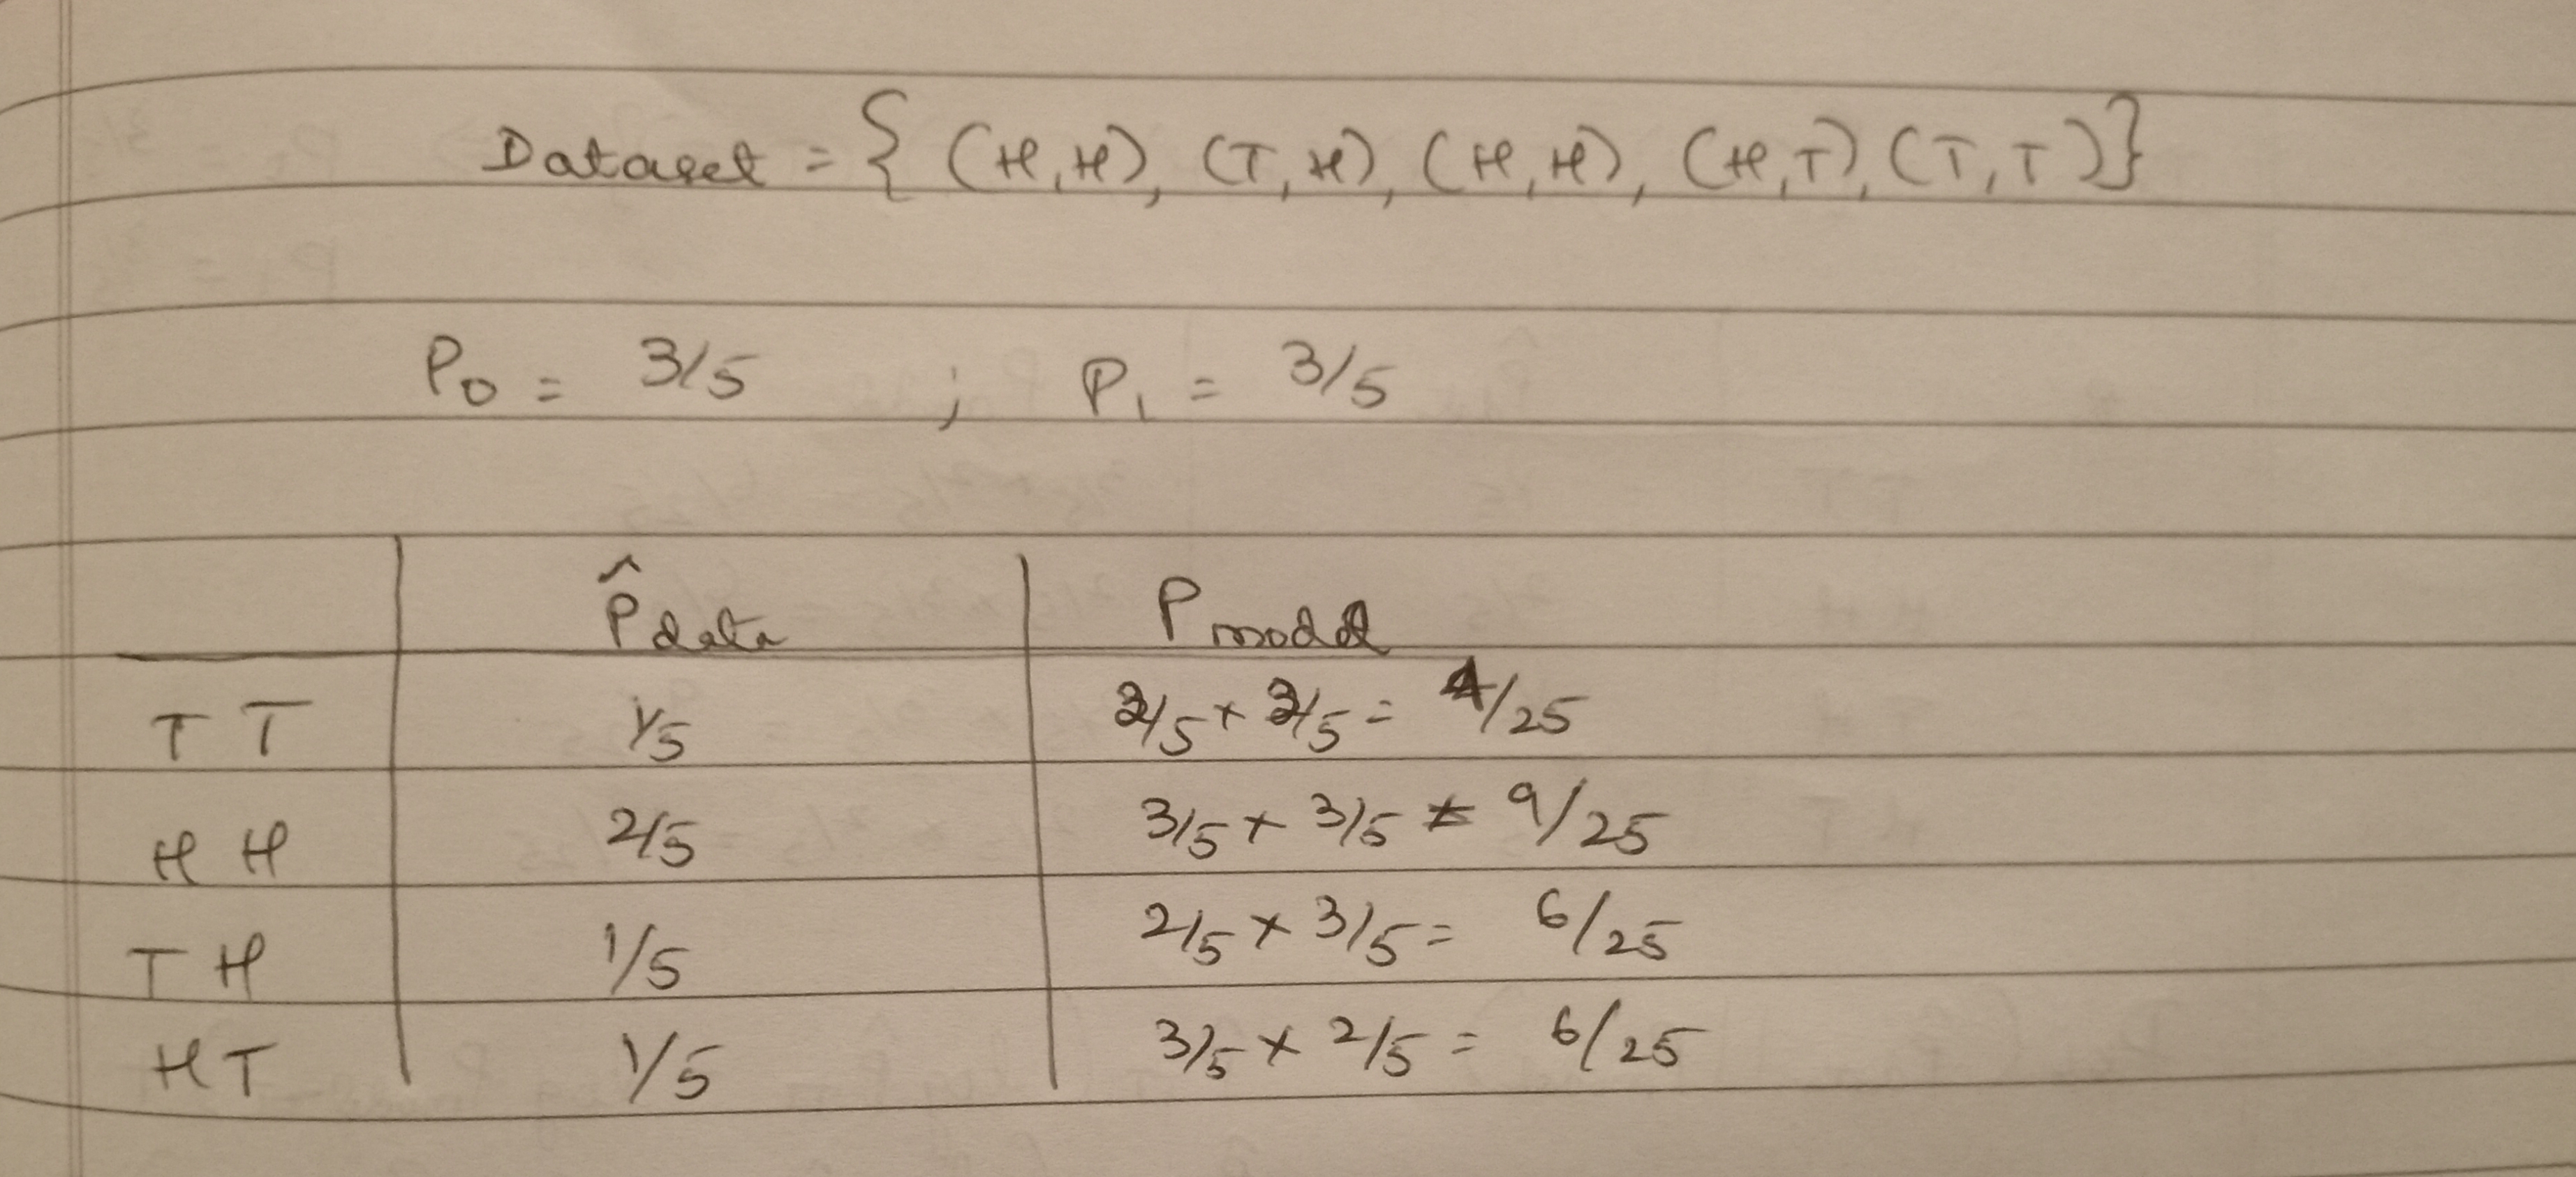 Dataset = { (H,H), (T,H), (H,H), (H,T), (T,T)}
P₀ = 3/5 ; P₁ = 3/5
P̂data Pmodel
T T 1/5 2/5 × 2/5 = 4/25
H H 2/5 3/5 × 3/5 = 9/25
T H 1/5 2/5 × 3/5 = 6/25
H T 1/5 3/5 × 2/5 = 6/25